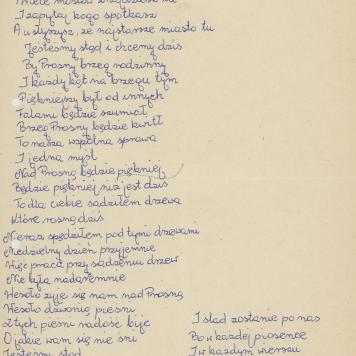 I zapytaj kogo spotkasz
A usłyszysz, że najstarsze miasto tu
Jesteśmy stąd i chcemy dziś
By Prosny brzeg rodzinny
I każdy kąt na brzegu tym
Piękniejszy był od innych
Falami będzie szumiał
Brzeg Prosny będzie kwitł
To nasza wspólna sprawa
I jedna myśl
Nad Prosną będzie piękniej
Będzie piękniej niż jest dziś
To dla ciebie sadziłem drzewa
Które rosną dziś
Nieraz spędziłem pod tymi drzewami
Niedzielny dzień przyjemnie
Więc praca przy sadzeniu drzew
Nie była nadaremnie
Wesoło żyje się nam nad Prosną
Wesoło dzwonią pieśni
Z tych pieśni radość bije
O jakiej wam się nie śni
Jesteśmy stąd
I stąd zostanie po nas
Bo w każdej piosence
I w każdym wierszu